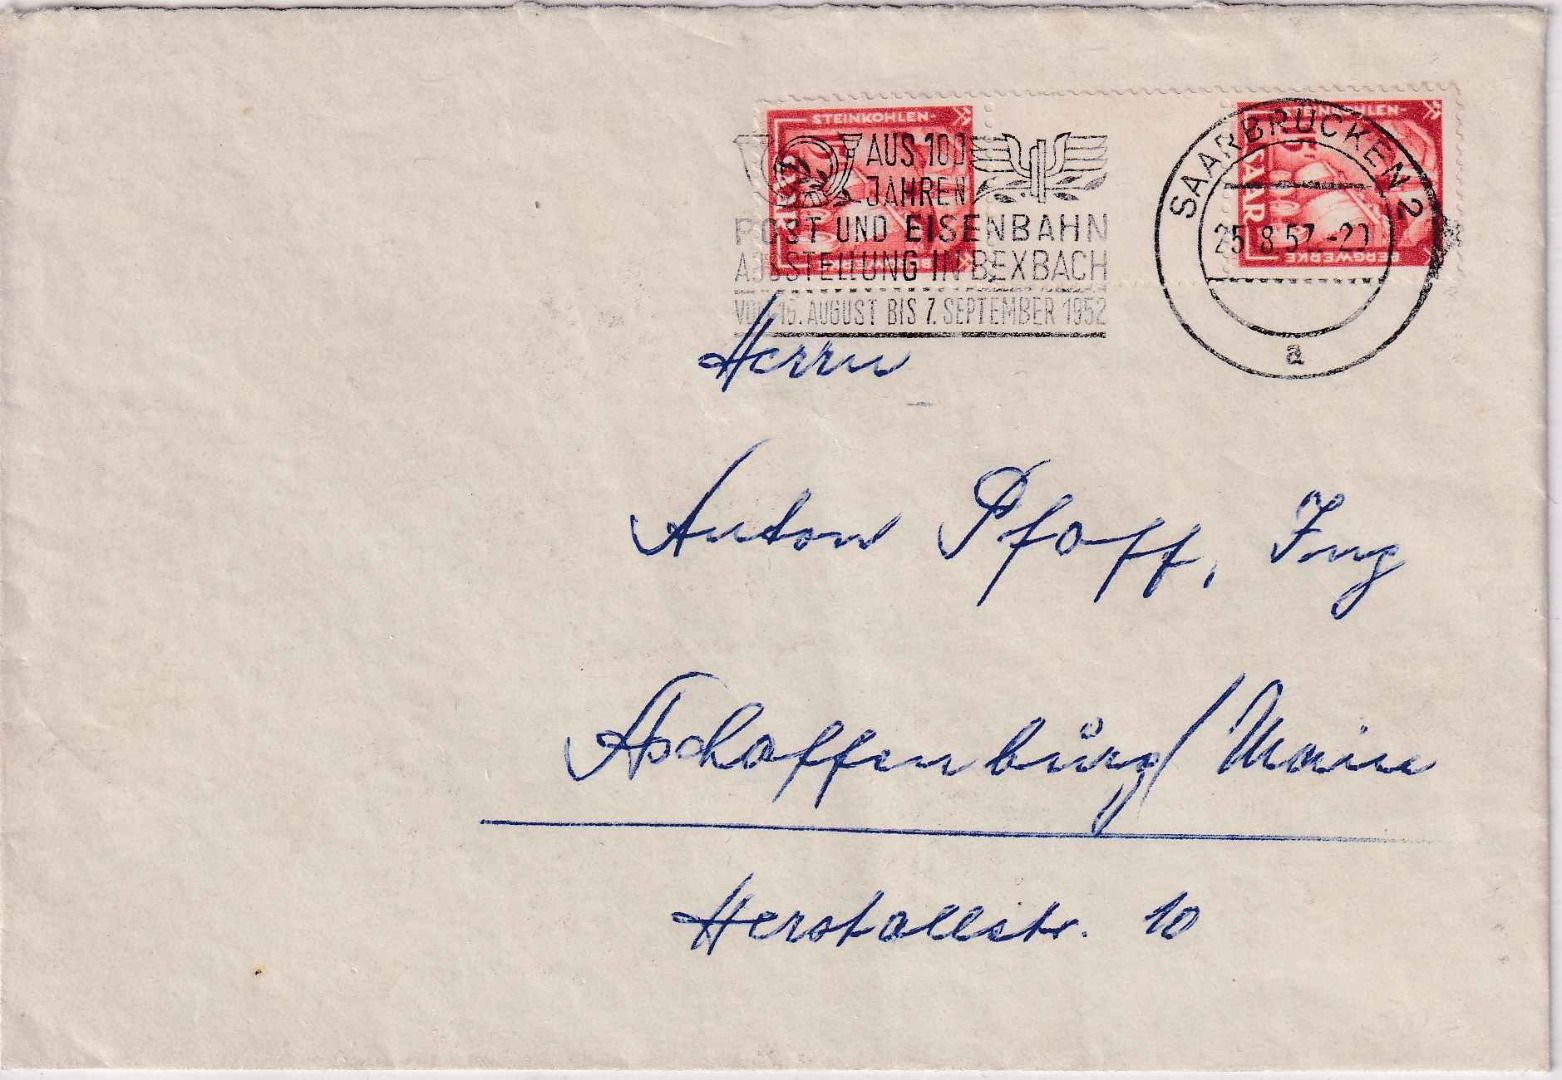 STEINKOHLEN-
STEINKOHLEN-
SAAR
SAAR
BERGWERKE
BERGWERKE
AUS 100
JAHREN
POST UND EISENBAHN
AUSSTELLUNG IN BEXBACH
VOM 15. AUGUST BIS 7. SEPTEMBER 1952
SAARBRÜCKEN 2
25.8.52.-20
a
Herrn
Anton Pfaff, Ing
Aschaffenburg/Main
Herstallstr. 10